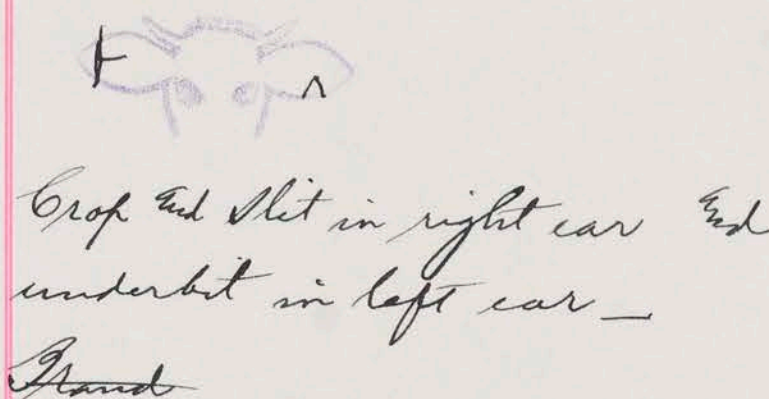 Crop and Slit in right ear and
underbit in left ear —
Brand